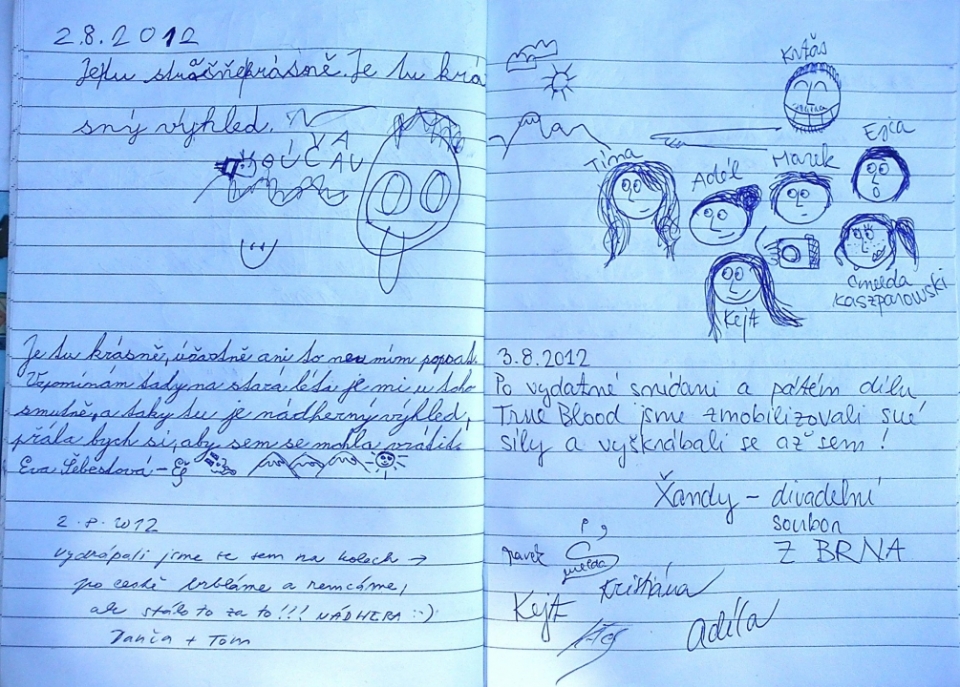 2.8.2012
Je tu krá
sný výhled.
Je tu krásně, úžastně ani to neumím popsat.
Vzpomínám tady na stará léta je mi u toho
smutně, a taky tu je nádherný výhled,
přála bych si, aby sem se mohla vrátit.
Eva Šebestová - EŠ
2.8.2012
vydrápali jsme se sem na kolech →
po česku brbláme a remcáme,
ale stálo to za to!!! NÁDHERA :-)
Janča + Tom
Tina
Adél
Marek
Kejt
kaszparowski
3.8.2012
Po vydatné snídani a pátém dílu
True Blood jsme zmobilizovali své
síly a vyškrábali se až sem!
Xandy - divadelní
soubor
Z BRNA
Kristiána
Kejt
Adéla